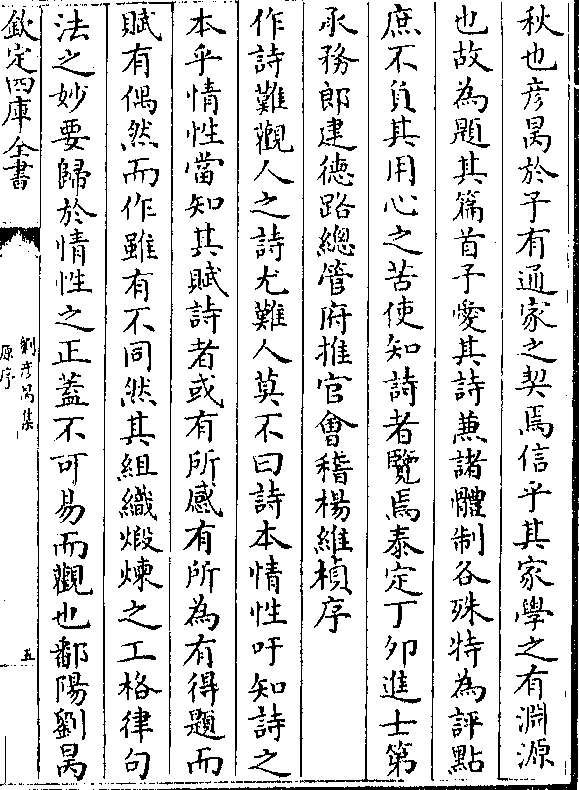 秋也彦昺於予有通家之契焉信乎其家學之有淵源
也故為題其篇首予愛其詩蕪諸體制各殊特為評點
庶不負其用心之苦使知詩者覽焉泰定丁夘進士第
承務郎建德路總管府推官會稽楊維楨序
作詩難觀人之詩尤難人莫不曰詩本情性吁知詩之
本乎情性當知其賦詩者或有所感有所為有得題而
賦有偶然而作雖有不同然其組織煅煉之工格律句
法之妙要歸於情性之正葢不可易而觀也鄱陽劉昺
欽定四庫全書
劉彦昺集
原序
五